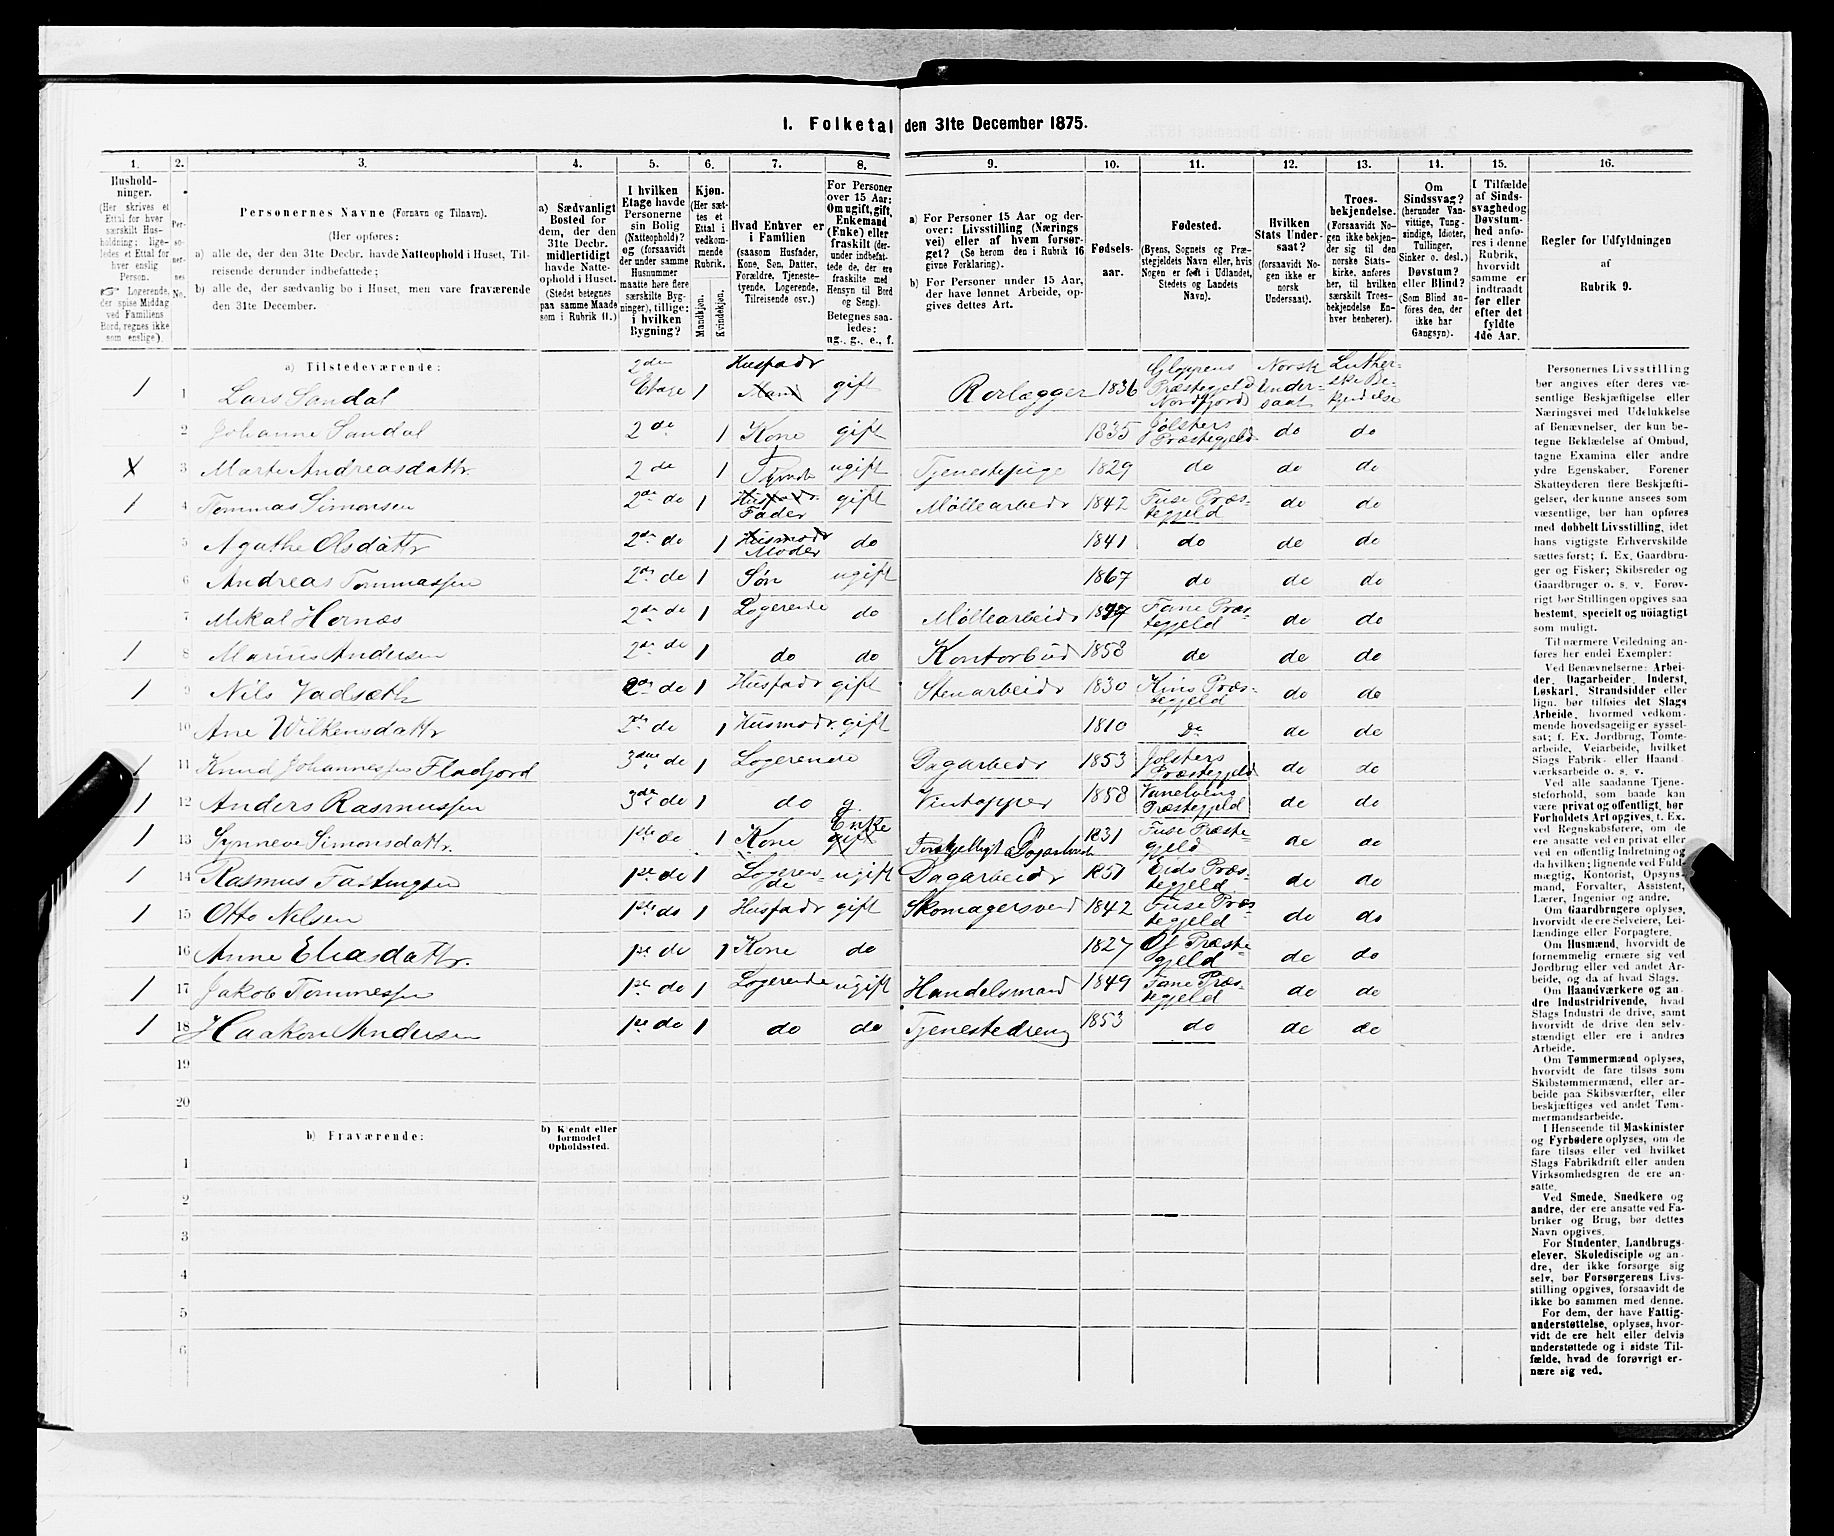 I. Folketal den 31te December 1875.
1. 2. 3. 4. 5. 6. 7. 8. 9. 10. 11. 12. 13. 14. 15. 16.
Husholdninger. (Her skrives et Ettal for hver særskilt Husholdning; ligeledes et Ettal for hver enslig Person. ☞ Logerende, der spise Middag ved Familiens Bord, regnes ikke som enslige).
Personernes No.
Personernes Navne (Fornavn og Tilnavn).
(Her opføres:
a) alle de, der den 31te Decbr. havde Natteophold i Huset, Tilreisende derunder indbefattede;
b) alle de, der sædvanlig bo i Huset, men vare fraværende den 31te December.
a) Sædvanligt Bosted for dem, der den 31te Decbr. midlertidigt havde Natteophold i Huset. (Stedet betegnes paa samme Maade som i Rubrik 11.)
I hvilken Etage havde Personerne sin Bolig (Natteophold)? og (forsaavidt der under samme Husnummer maatte høre flere særskilte Bygninger), tillige: i hvilken Bygning?
Kjøn. (Her sættes et Ettal i vedkommende Rubrik.
Mandkjøn. Kvindekjøn.
Hvad Enhver er i Familien (saasom Husfader, Kone, Søn, Datter, Forældre, Tjenestetyende, Logerende, Tilreisende osv.)
For Personer over 15 Aar: Om ugift, gift, Enkemand (Enke) eller fraskilt (derunder indbefattede de, der ere fraskilte med Hensyn til Bord og Seng). Betegnes saaledes: ug., g., e., f.
a) For Personer 15 Aar og derover: Livsstilling (Næringsvei) eller af hvem forsørget? (Se herom den i Rubrik 16 givne Forklaring).
b) For Personer under 15 Aar, der have lønnet Arbeide, opgives dettes Art.
Fødselsaar.
Fødested. (Byens, Sognets og Præstegjeldets Navn eller, hvis Nogen er født i Udlandet, Stedets og Landets Navn).
Hvilken Stats Undersaat? (forsaavidt Nogen ikke er norsk Undersaat).
Troesbekjendelse. (Forsaavidt Nogen ikke bekjender sig til den norske Statskirke, anføres her, til hvilken særskilt Troesbekjendelse Enhver henhører).
Om Sindssvag? (herunder Vanvittige, Tungsindige, Idioter, Tullinger, Sinker o. desl.) Døvstum? eller Blind? (Som Blind anføres den, der ikke har Gangsyn).
I Tilfælde af Sindssvaghed og Døvstumhed anføres i denne Rubrik, hvorvidt samme er indtraadt før eller efter det fyldte 4de Aar.
Regler for Udfyldningen af Rubrik 9.
a) Tilstedeværende:
1 1 Lars Sandal 2den Etage 1 Mand Husfadr gift Rørlægger 1836 Gloppens Præstegjeld Nordfjord Norsk Undersaat Lutherske Bekjendelse
2 Johanne Sandal 2de 1 Kone gift 1835 Jølsters Præstegjeld do do
X 3 Marte Andreasdattr 2 de 1 ugift Tjenestepige 1829 do do do
1 4 Tommas Simonsen 2de do 1 Husfadr Fader gift Møllearbeidr 1842 Fuse Præstegjeld do do
5 Agathe Olsdattr 2de do 1 Husmodr Moder do 1841 do do do
6 Andreas Tommassen 2de do 1 Søn ugift 1867 do do do
7 Mikal Hernæs 2de do 1 Logerende do Møllearbeidr Fane Præstegjeld do do
1 8 Marius Andersen 2de do 1 do do Kontorbud 1858 do do do
1 9 Nils Vadsæth 2de do 1 Husfadr gift Stenarbeidr 1830 Kins Præstegjeld do do
10 Ane Wilkensdattr 2de do 1 Husmodr gift 1810 Do do do
1 11 Knud Johannessen Fladfjord 3die do 1 Logerende Dagarbeidr 1853 Jølsters Præstegjeld do do
1 12 Anders Rasmussen 3die do 1 do g. Vintapper 1858 Vanelvens Præstegjeld do do
1 13 Synneve Simonsdattr. 1ste do 1 Kone gift Enke Forskjelligt Dagarbeide 1831 Fuse Præstegjeld do do
1 14 Rasmus Fastingsen 1ste do 1 Logerende ugift Dagarbeidr 1851 Eids Præstegjeld do do
1 15 Otto Nelsen 1ste do 1 Husfadr gift Skomagersvend 1842 Fuse Præstegjeld do do
16 Anne Eliasdattr. 1ste do 1 Kone do 1827 Præstegjeld do do
1 17 Jakob Tommessen 1ste do 1 Logerende ugift Handelsmand 1849 Fane Præstegjeld do do
1 18 Haakon Andersen 1ste do 1 do do Tjenestedreng 1853 do do do
19
20
b) Fraværende: b) Kjendt eller formodet Opholdssted.
1
2
3
4
5
6
Personernes Livsstilling
bør angives efter deres væ-
sentlige Beskjæftigelse eller
Næringsvei med Udelukkelse
af Benævnelser, der kun be-
tegne Beklædelse af Ombud,
tagne Examina eller andre
ydre Egenskaber. Forener
Skatteyderen flere Beskjæfti-
gelser, der kunne ansees som
væsentlige, bør han opføres
med dobbelt Livsstilling, idet
hans vigtigste Erhvervskilde
sættes først; f. Ex. Gaardbru-
ger og Fisker; Skibsreder og
Gaardbruger o. s. v. Forøv-
rigt bør Stillingen opgives saa
bestemt, specielt og nøiagtigt
som muligt.
Til nærmere Veiledning an-
føres her endel Exempler:
Ved Benævnelserne: Arbei-
der, Dagarbeider, Inderst,
Løskarl, Strandsidder eller
lign. bør tilføies det Slags
Arbeide, hvormed vedkom-
mende hovedsagelig er syssel-
sat; f. Ex. Jordbrug, Tomte-
arbeide, Veiarbeide, hvilket
Slags Fabrik- eller Haand-
værksarbeide o. s. v.
Ved alle saadanne Tjene-
steforhold, som baade kan
være privat og offentligt, bør
Forholdets Art opgives, f. Ex.
ved Regnskabsførere, om de
ere ansatte ved en privat eller
ved en offentlig Indretning og
da hvilken; lignende ved Fuld-
mægtig, Kontorist, Opsyns-
mand, Forvalter, Assistent,
Lærer, Ingeniør og andre.
Om Gaardbrugere oplyses,
hvorvidt de ere Selveiere, Lei-
lændinge eller Forpagtere.
Om Husmænd, hvorvidt de
fornemmelig ernære sig ved
Jordbrug eller ved andet Ar-
beide, og da af hvad Slags.
Om Haandværkere og an-
dre Industridrivende, hvad
Slags Industri de drive, samt
hvorvidt de drive den selv-
stændigt eller ere i andres
Arbeide.
Om Tømmermænd oplyses,
hvorvidt de fare tilsøs som
Skibstømmermænd, eller ar-
beide paa Skibsværfter, eller
beskjæftiges ved andet Tøm-
mermandsarbeide.
I Henseende til Maskinister
og Fyrbødere oplyses, om de
fare tilsøs eller ved hvilket
Slags Fabrikdrift eller anden
Virksomhedsgren de ere an-
satte.
Ved Smede, Snedkere og
andre, der ere ansatte ved Fa-
briker og Brug, bør dettes
Navn opgives.
For Studenter, Landbrugs-
elever, Skoledisciple og an-
dre, der ikke forsørge sig
selv, bør Forsørgerens Livs-
stilling opgives, forsaavidt de
ikke bo sammen med denne.
For dem, der have Fattig-
understøttelse, oplyses, hvor-
vidt de ere helt eller delvis
understøttede og i sidste Til-
fælde, hvad de forøvrigt er-
nære sig ved.